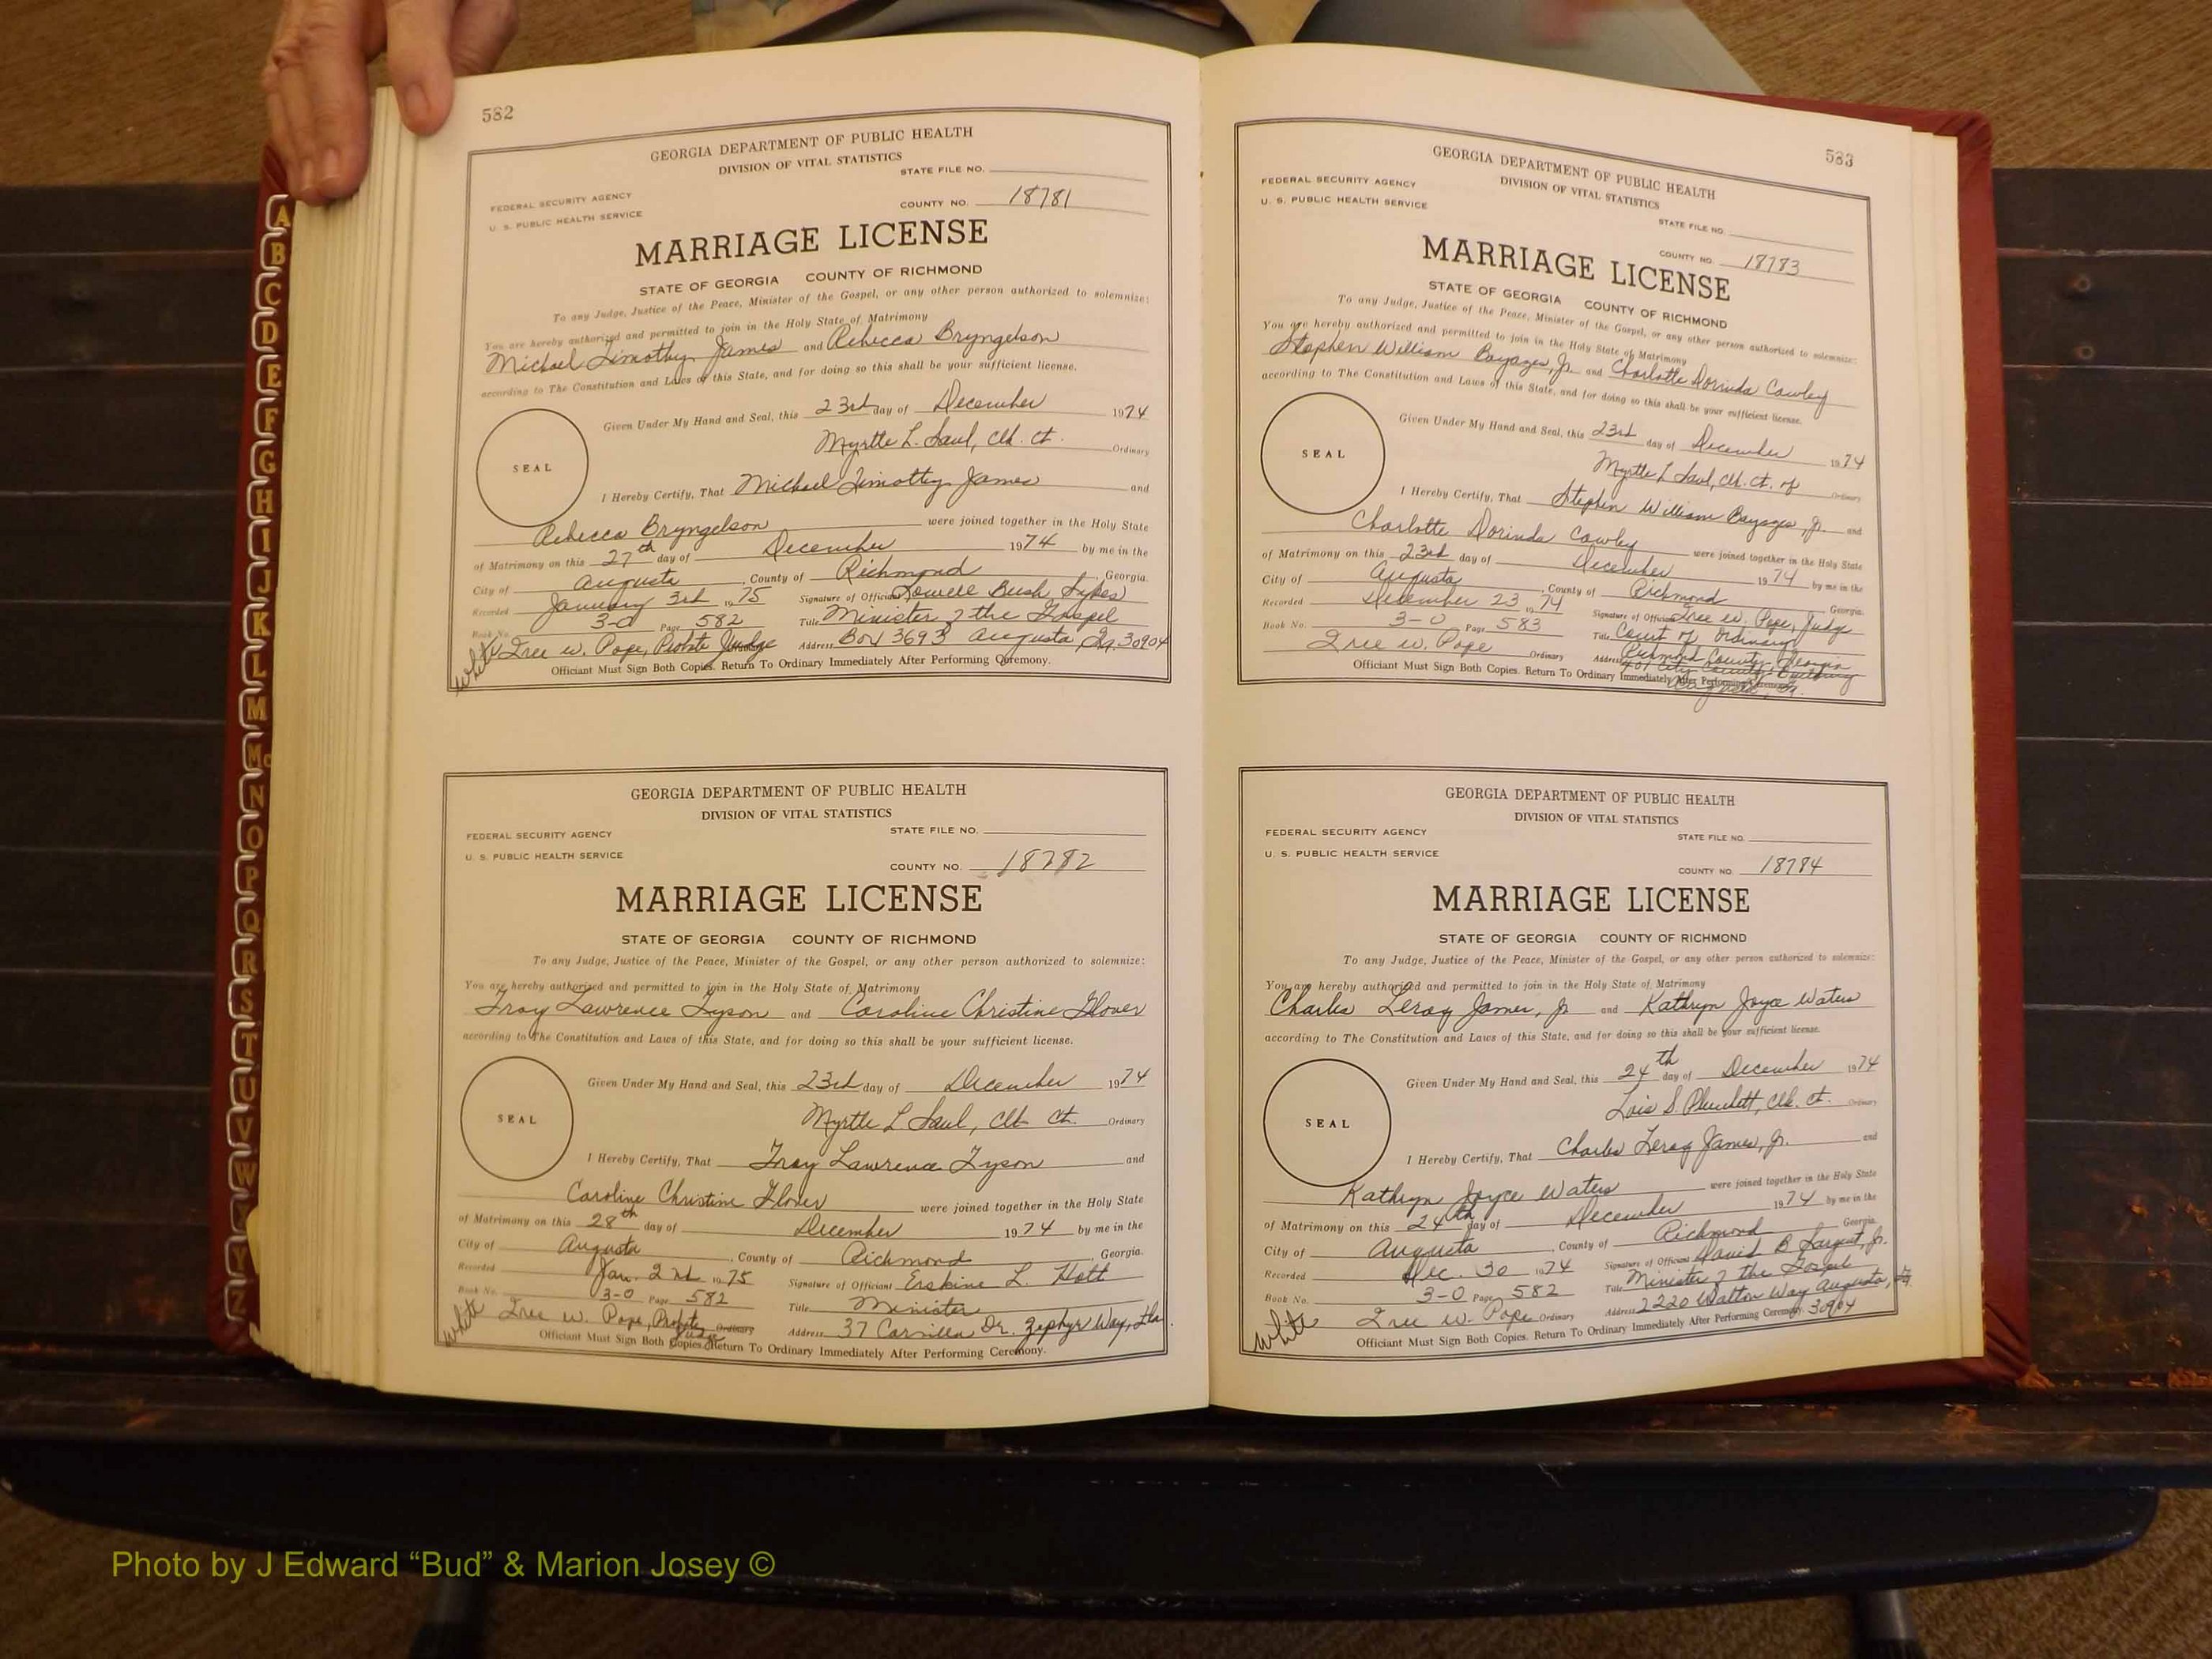 582
GEORGIA DEPARTMENT OF PUBLIC HEALTH
DIVISION OF VITAL STATISTICS
STATE FILE NO.
FEDERAL SECURITY AGENCY
U. S. PUBLIC HEALTH SERVICE
COUNTY NO. 18781
MARRIAGE LICENSE
STATE OF GEORGIA COUNTY OF RICHMOND
To any Judge, Justice of the Peace, Minister of the Gospel, or any other person authorized to solemnize:
You are hereby authorized and permitted to join in the Holy State of Matrimony
Michael Timothy James and Rebecca Bryngelson
according to The Constitution and Laws of this State, and for doing so this shall be your sufficient license.
Given Under My Hand and Seal, this 23rd day of December 1974
Myrtle L. Saul, Clk. Ct. Ordinary
SEAL
I Hereby Certify, That Michael Timothy James and
Rebecca Bryngelson were joined together in the Holy State
of Matrimony on this 27th day of December 1974 by me in the
City of Augusta, County of Richmond, Georgia.
Recorded January 3rd 1975 Signature of Official Lowell Bush Sykes
Book No. 3-O Page 582 Title Minister of the Gospel
White Tree W. Pope, Probate Judge Ordinary Address Box 3693 Augusta, Ga. 30904
Officiant Must Sign Both Copies. Return To Ordinary Immediately After Performing Ceremony.
GEORGIA DEPARTMENT OF PUBLIC HEALTH
DIVISION OF VITAL STATISTICS
FEDERAL SECURITY AGENCY
STATE FILE NO.
U. S. PUBLIC HEALTH SERVICE
COUNTY NO. 18782
MARRIAGE LICENSE
STATE OF GEORGIA COUNTY OF RICHMOND
To any Judge, Justice of the Peace, Minister of the Gospel, or any other person authorized to solemnize:
You are hereby authorized and permitted to join in the Holy State of Matrimony
Troy Lawrence Tyson and Caroline Christine Glover
according to The Constitution and Laws of this State, and for doing so this shall be your sufficient license.
Given Under My Hand and Seal, this 23rd day of December 1974
Myrtle L Saul, Clk Ct. Ordinary
SEAL
I Hereby Certify, That Troy Lawrence Tyson and
Caroline Christine Glover were joined together in the Holy State
of Matrimony on this 28th day of December 1974 by me in the
City of Augusta, County of Richmond, Georgia.
Recorded Jan. 2nd 1975 Signature of Officiant Erskine L. Holt
Book No. 3-O Page 582 Title Minister
White Tree W. Pope, Probate Judge Ordinary Address 37 Dr. Zephyr Way, Fla.
Officiant Must Sign Both Copies. Return To Ordinary Immediately After Performing Ceremony.
583
GEORGIA DEPARTMENT OF PUBLIC HEALTH
DIVISION OF VITAL STATISTICS
FEDERAL SECURITY AGENCY
U. S. PUBLIC HEALTH SERVICE
STATE FILE NO.
COUNTY NO. 18783
MARRIAGE LICENSE
STATE OF GEORGIA COUNTY OF RICHMOND
To any Judge, Justice of the Peace, Minister of the Gospel, or any other person authorized to solemnize:
You are hereby authorized and permitted to join in the Holy State of Matrimony
Stephen William Jr. and Charlotte Dorinda Cowley
according to The Constitution and Laws of this State, and for doing so this shall be your sufficient license.
Given Under My Hand and Seal, this 23rd day of December 1974
Myrtle L Saul, Clk. Ct. of Ordinary
SEAL
I Hereby Certify, That Stephen William Jr. and
Charlotte Dorinda Cowley were joined together in the Holy State
of Matrimony on this 23rd day of December 1974 by me in the
City of Augusta, County of Richmond Georgia.
Recorded December 23 1974 Signature of Officiant Tree W. Pope, Judge
Book No. 3-O Page 583 Title Court of Ordinary
Tree W. Pope Ordinary Address Richmond County, Georgia
401 City County Building
Officiant Must Sign Both Copies. Return To Ordinary Immediately After Performing Ceremony.
Augusta, Ga.
GEORGIA DEPARTMENT OF PUBLIC HEALTH
DIVISION OF VITAL STATISTICS
FEDERAL SECURITY AGENCY
STATE FILE NO.
U. S. PUBLIC HEALTH SERVICE
COUNTY NO. 18784
MARRIAGE LICENSE
STATE OF GEORGIA COUNTY OF RICHMOND
To any Judge, Justice of the Peace, Minister of the Gospel, or any other person authorized to solemnize:
You are hereby authorized and permitted to join in the Holy State of Matrimony
Charles Leroy James, Jr and Kathryn Joyce Waters
according to The Constitution and Laws of this State, and for doing so this shall be your sufficient license.
Given Under My Hand and Seal, this 24th day of December 1974
Lois S. Plunkett, Clk. Ct. Ordinary
SEAL
I Hereby Certify, That Charles Leroy James, Jr. and
Kathryn Joyce Waters were joined together in the Holy State
of Matrimony on this 24th day of December 1974 by me in the
City of Augusta, County of Richmond Georgia.
Recorded Dec. 30 1974 Signature of Officiant David B Sargent, Jr.
Book No. 3-O Page 582 Title Minister of the Gospel
White Tree W. Pope Ordinary Address 2220 Walton Way Augusta, Ga. 30904
Officiant Must Sign Both Copies. Return To Ordinary Immediately After Performing Ceremony.
A
B
C
D
E
F
G
H
I
J
K
L
M
Mc
N
O
P
Q
R
S
T
U
V
W
X
Y
Z
Photo by J Edward “Bud” & Marion Josey ©